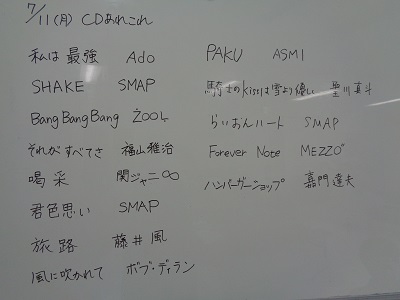 7/11(月) CDあれこれ
私は最強 Ado
SHAKE SMAP
Bang Bang Bang ŹOOĻ
それがすべてさ 福山雅治
喝采 関ジャニ∞
君色思い SMAP
旅路 藤井風
風に吹かれて ボブ・ディラン
PAKU ASMI
騎士のkissは雪より優しい 聖川真斗
らいおんハート SMAP
Forever Note MEZZO"
ハンバーガーショップ 嘉門達夫